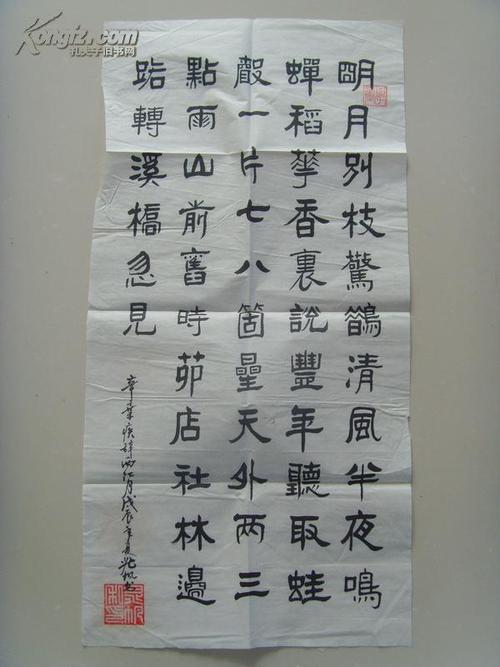 Kongfz.com
孔夫子旧书网
明月別枝驚鵲清風半夜鳴
蟬稻華香裏說豐年聽取蛙
聲一片七八箇星天外兩三
點雨山前舊時茆店社林邊
路轉溪橋忽見
辛棄疾詞西江月戊辰年夏